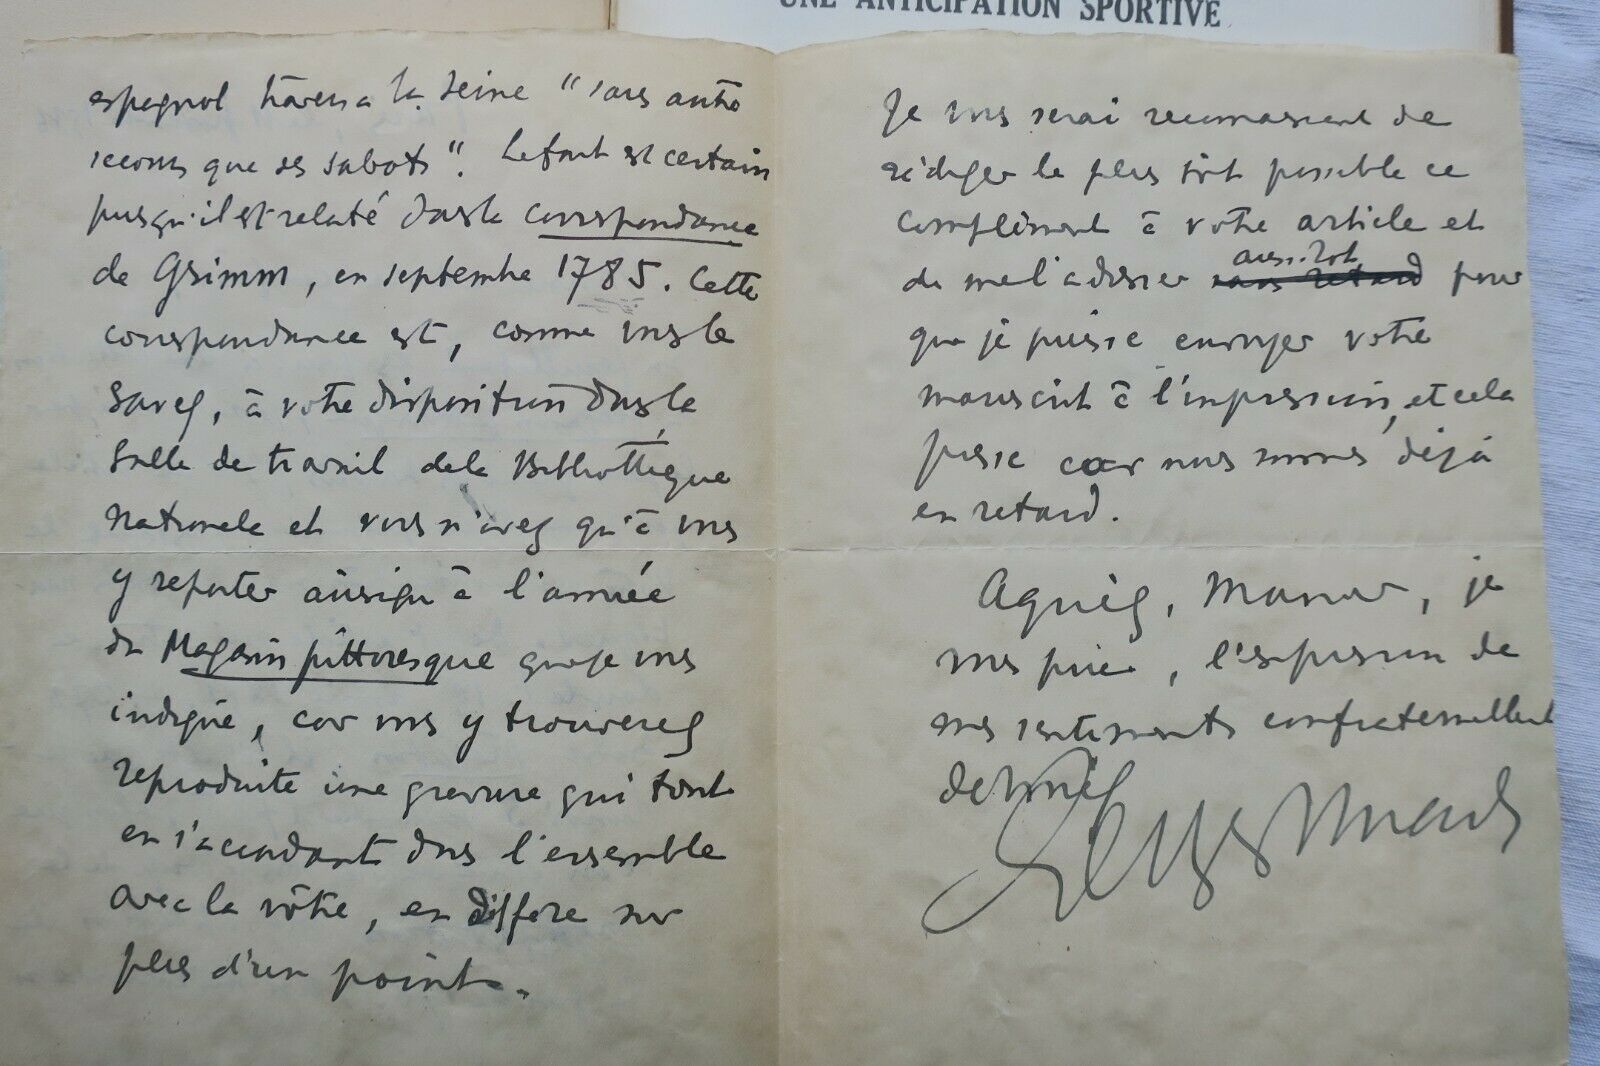 UNE ANTICIPATION SPORTIVE
espagnol traversa la Seine " sans autre
secours que ses sabots ". Le fait est certain
puisqu'il est relaté dans la Correspondance
de Grimm, en septembre 1785. Cette
correspondance est, comme vous le
savez, à votre disposition dans la
Salle de travail de la Bibliothèque
Nationale et vous n'avez qu'à vous
y reporter ainsi qu'à l'année
du Magasin pittoresque que je vous
indique, car vous y trouverez
reproduite une gravure qui tout
en s'accordant dans l'ensemble
avec la vôtre, en diffère sur
plus d'un point.
Je vous serai reconnaissant de
rédiger le plus tôt possible ce
complément à votre article et
de me l'adresser sans retard aussitôt pour
que je puisse envoyer votre
manuscrit à l'impression, et cela
presse car nous sommes déjà
en retard.
Agréez, Monsieur, je
vous prie, l'expression de
mes sentiments confraternellement
dévoués